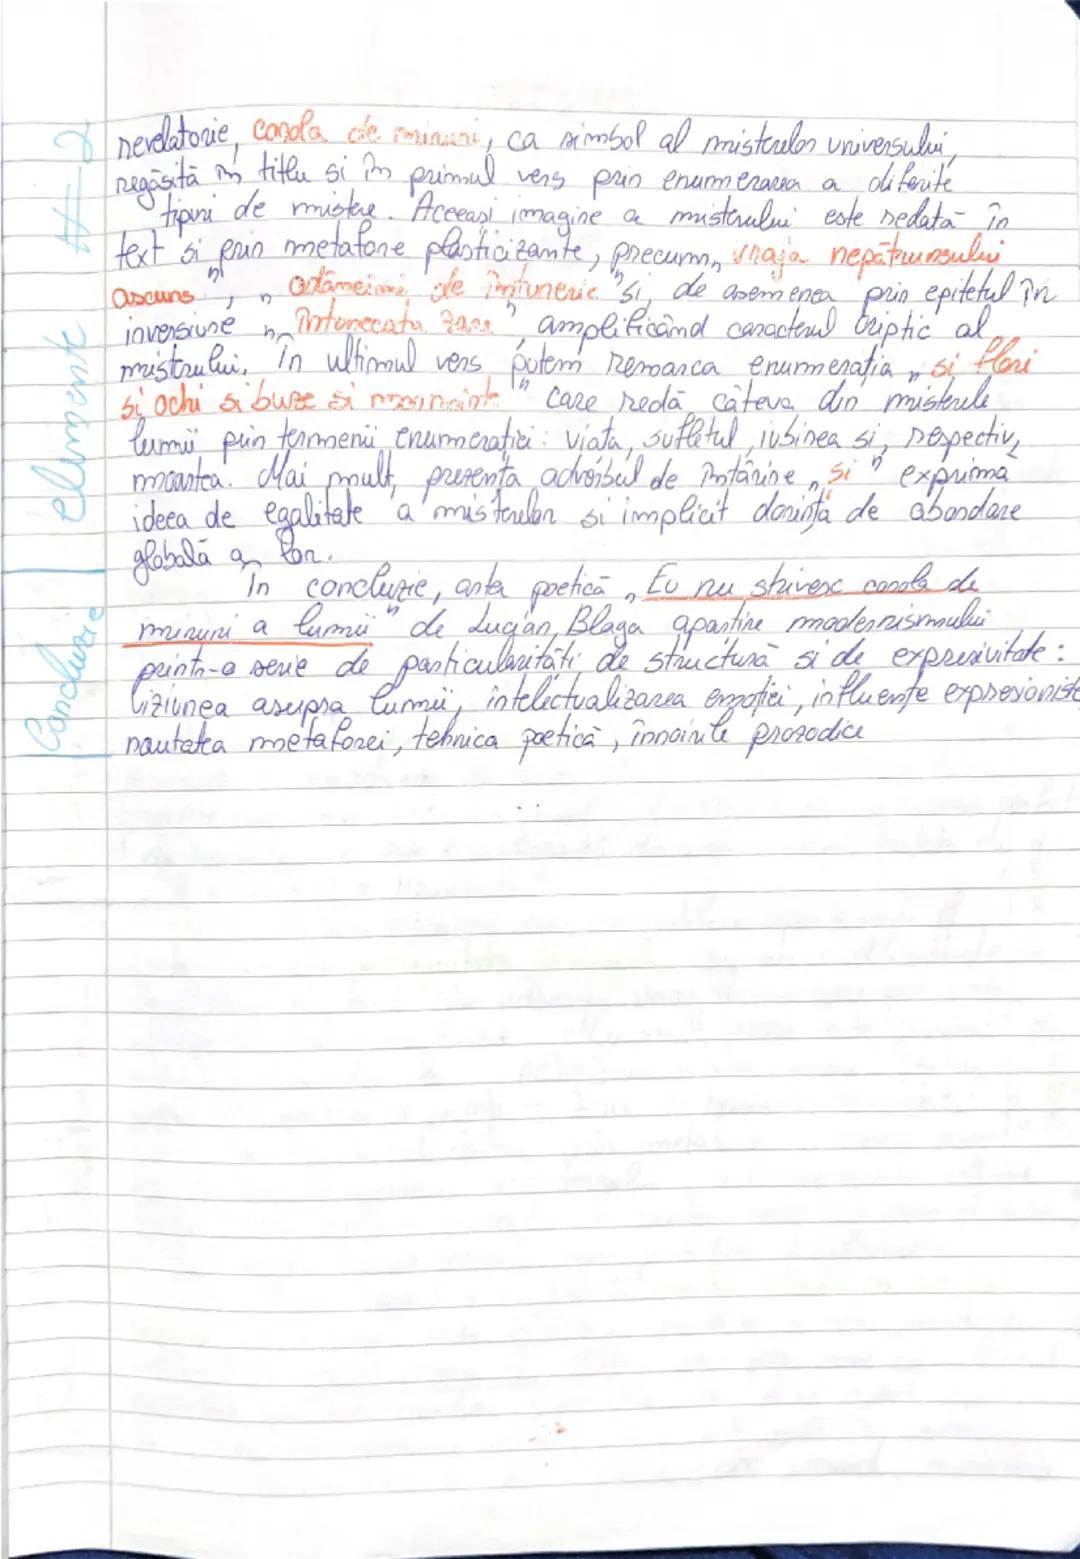 revelatorie, corola de minuni, ca simbol al misterelor universului,
regăsită în titlu si în primul vers prin enumerarea a diferite
tipuri de mistere. Aceeași imagine a misterului este redată în
text si prin metafore plasticizante, precum „vraja nepătrunsului
ascuns", „adâncimi de întuneric" si, de asemenea prin epitetul în
inversiune „întunecata zare" amplificând caracterul criptic al
misterului. În ultimul vers putem remarca enumerația „si flori
si ochi si buze si morminte" care redă câteva din misterele
lumii prin termenii enumerației: viata, sufletul, iubirea si, respectiv,
moartea. Mai mult, prezența adverbul de întărire „si" exprima
ideea de egalitate a misterelor si implicit dorința de abordare
globală a lor.
În concluzie, arta poetică „Eu nu strivesc corola de
minuni a lumii" de Lucian Blaga apartine modernismului
printr-o serie de particularități de structură si de expresivitate:
viziunea asupra lumii, intelectualizarea emoției, influențe expresioniste
noutatea metaforei, tehnica poetică, înnoirile prozodice
elemente #-2
Concluzie